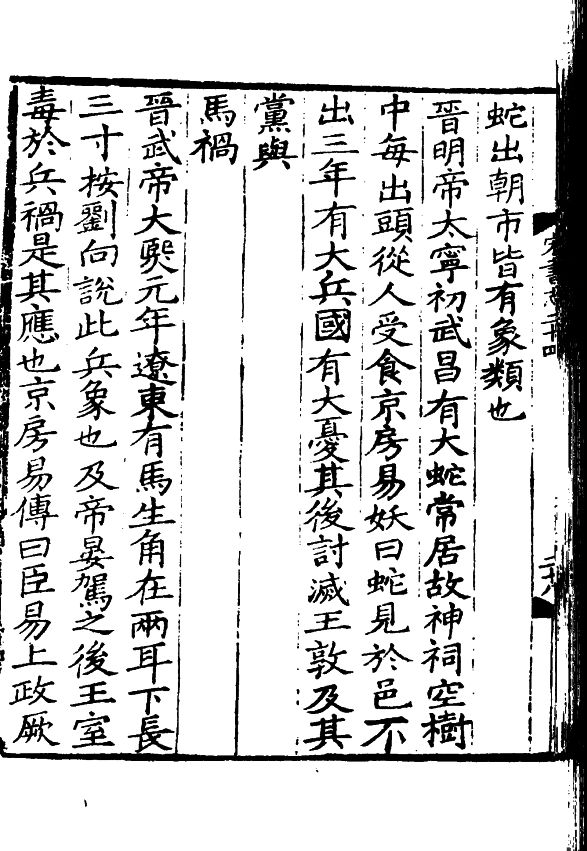 蛇出朝市皆有象類也
晉明帝太寧初武昌有大蛇常居故神祠空樹
中每出頭從人受食京房易妖曰蛇見於邑不
出三年有大兵國有大憂其後討滅王敦及其
黨與
馬禍
晉武帝大熙元年遼東有馬生角在兩耳下長
三寸按劉向說此兵象也及帝晏駕之後王室
毒於兵禍是其應也京房易傳曰臣易上政厥